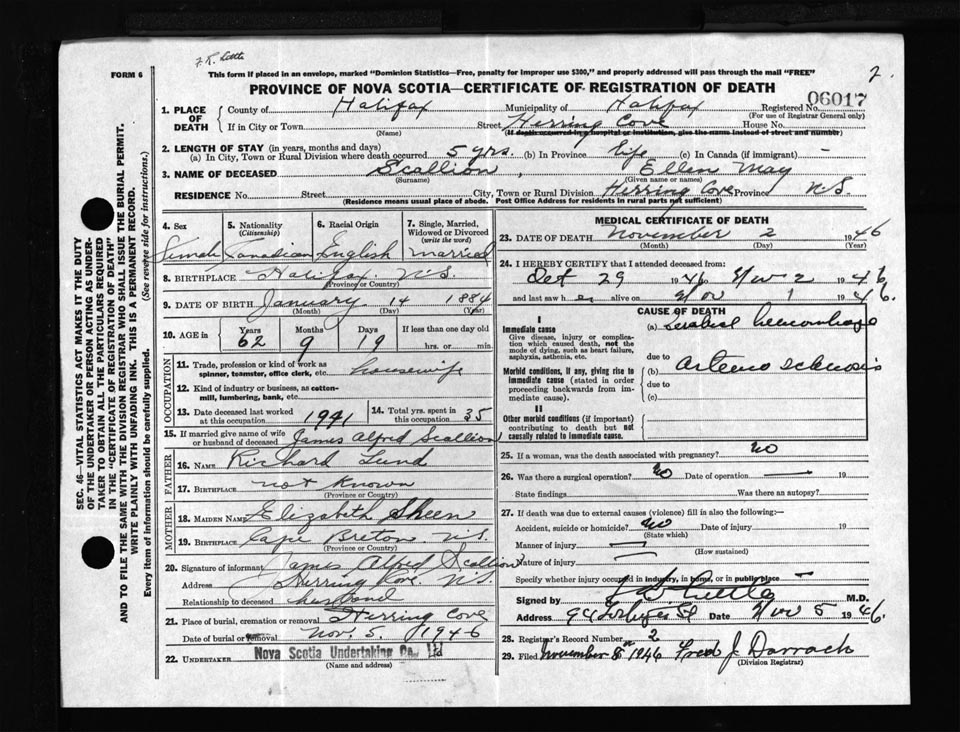 FORM 6
2.
This form if placed in an envelope, marked "Dominion Statistics—Free, penalty for improper use $300," and properly addressed will pass through the mail "FREE"
PROVINCE OF NOVA SCOTIA—CERTIFICATE OF REGISTRATION OF DEATH
06017
1. PLACE OF DEATH County of Halifax Municipality of Halifax Registered No.
(For use of Registrar General only)
If in City or Town Street Herring Cove House No.
(Name) (If death occurred in a hospital or institution, give the name instead of street and number)
2. LENGTH OF STAY (in years, months and days)
(a) In City, Town or Rural Division where death occurred 5 yrs. (b) In Province life (c) In Canada (if immigrant) —
3. NAME OF DECEASED Scallion, Ellen May
(Surname) (Given name or names)
RESIDENCE No. Street City, Town or Rural Division Herring Cove Province N.S.
(Residence means usual place of abode. Post Office Address for residents in rural parts not sufficient)
4. Sex 5. Nationality (Citizenship) 6. Racial Origin 7. Single, Married, Widowed or Divorced (write the word)
Female Canadian English married
8. BIRTHPLACE Halifax N.S.
(Province or Country)
9. DATE OF BIRTH January 14 1884
(Month) (Day) (Year)
10. AGE in Years Months Days If less than one day old
62 9 19 hrs. or min.
OCCUPATION
11. Trade, profession or kind of work as spinner, teamster, office clerk, etc. housewife
12. Kind of industry or business, as cotton-mill, lumbering, bank, etc.
13. Date deceased last worked at this occupation 1941 14. Total yrs. spent in this occupation 35
15. If married give name of wife or husband of deceased James Alfred Scallion
FATHER
16. NAME Richard Lund
17. BIRTHPLACE not known
(Province or Country)
MOTHER
18. MAIDEN NAME Elizabeth Sheen
19. BIRTHPLACE Cape Breton N.S.
(Province or Country)
20. Signature of informant James Alfred Scallion
Address Herring Cove. N.S.
Relationship to deceased husband
21. Place of burial, cremation or removal Herring Cove
Date of burial or removal Nov. 5. 1946
22. UNDERTAKER Nova Scotia Undertaking Co., Ltd
(Name and address)
MEDICAL CERTIFICATE OF DEATH
23. DATE OF DEATH November 2 1946
(Month) (Day) (Year)
24. I HEREBY CERTIFY that I attended deceased from:
Oct 29 1946 Nov 2 1946
and last saw her alive on Nov 1 1946.
CAUSE OF DEATH
I
Immediate cause
Give disease, injury or complication which caused death, not the mode of dying, such as heart failure, asphyxia, asthenia, etc.
(a) Cerebral hemorrhage
due to
Morbid conditions, if any, giving rise to immediate cause (stated in order proceeding backwards from immediate cause).
(b) arterio sclerosis
due to
(c)
II
Other morbid conditions (if important) contributing to death but not causally related to immediate cause.
25. If a woman, was the death associated with pregnancy? NO
26. Was there a surgical operation? NO Date of operation — 19
State findings Was there an autopsy?
27. If death was due to external causes (violence) fill in also the following:—
Accident, suicide or homicide? NO Date of injury 19
(State which)
Manner of injury —
(How sustained)
Nature of injury —
Specify whether injury occurred in industry, in home, or in public place —
Signed by M.D.
Address Date Nov 5 1946.
28. Registrar's Record Number 2
29. Filed November 8th 1946 Fred J Darrach
(Division Registrar)
SEC. 46—VITAL STATISTICS ACT MAKES IT THE DUTY
OF THE UNDERTAKER OR PERSON ACTING AS UNDER-
TAKER TO OBTAIN ALL THE PARTICULARS REQUIRED
IN THE "CERTIFICATE OF REGISTRATION OF DEATH"
AND TO FILE THE SAME WITH THE DIVISION REGISTRAR WHO SHALL ISSUE THE BURIAL PERMIT.
WRITE PLAINLY WITH UNFADING INK. THIS IS A PERMANENT RECORD.
Every item of information should be carefully supplied. (See reverse side for instructions.)